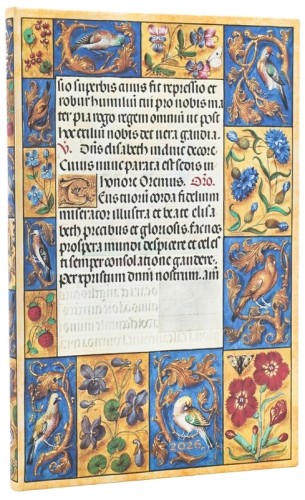 sio superbis cuius fit repressio et
robur humiliū tu pro nobis ma
ter pia rogo regem omniū ut post
hoc exiliū nobis det vera gaudia.
elisabeth induit decore
Cuius nunc parata est sedis in
honore Oremus. Oro.
tuorū corda fidelium
miserator illustra et beate elisa
beth precibus et gloriosis fac nos
prospera mundi despicere et celes
ti semper consolatione gaudere.
Per xpistum dnm nostrum. am
2026